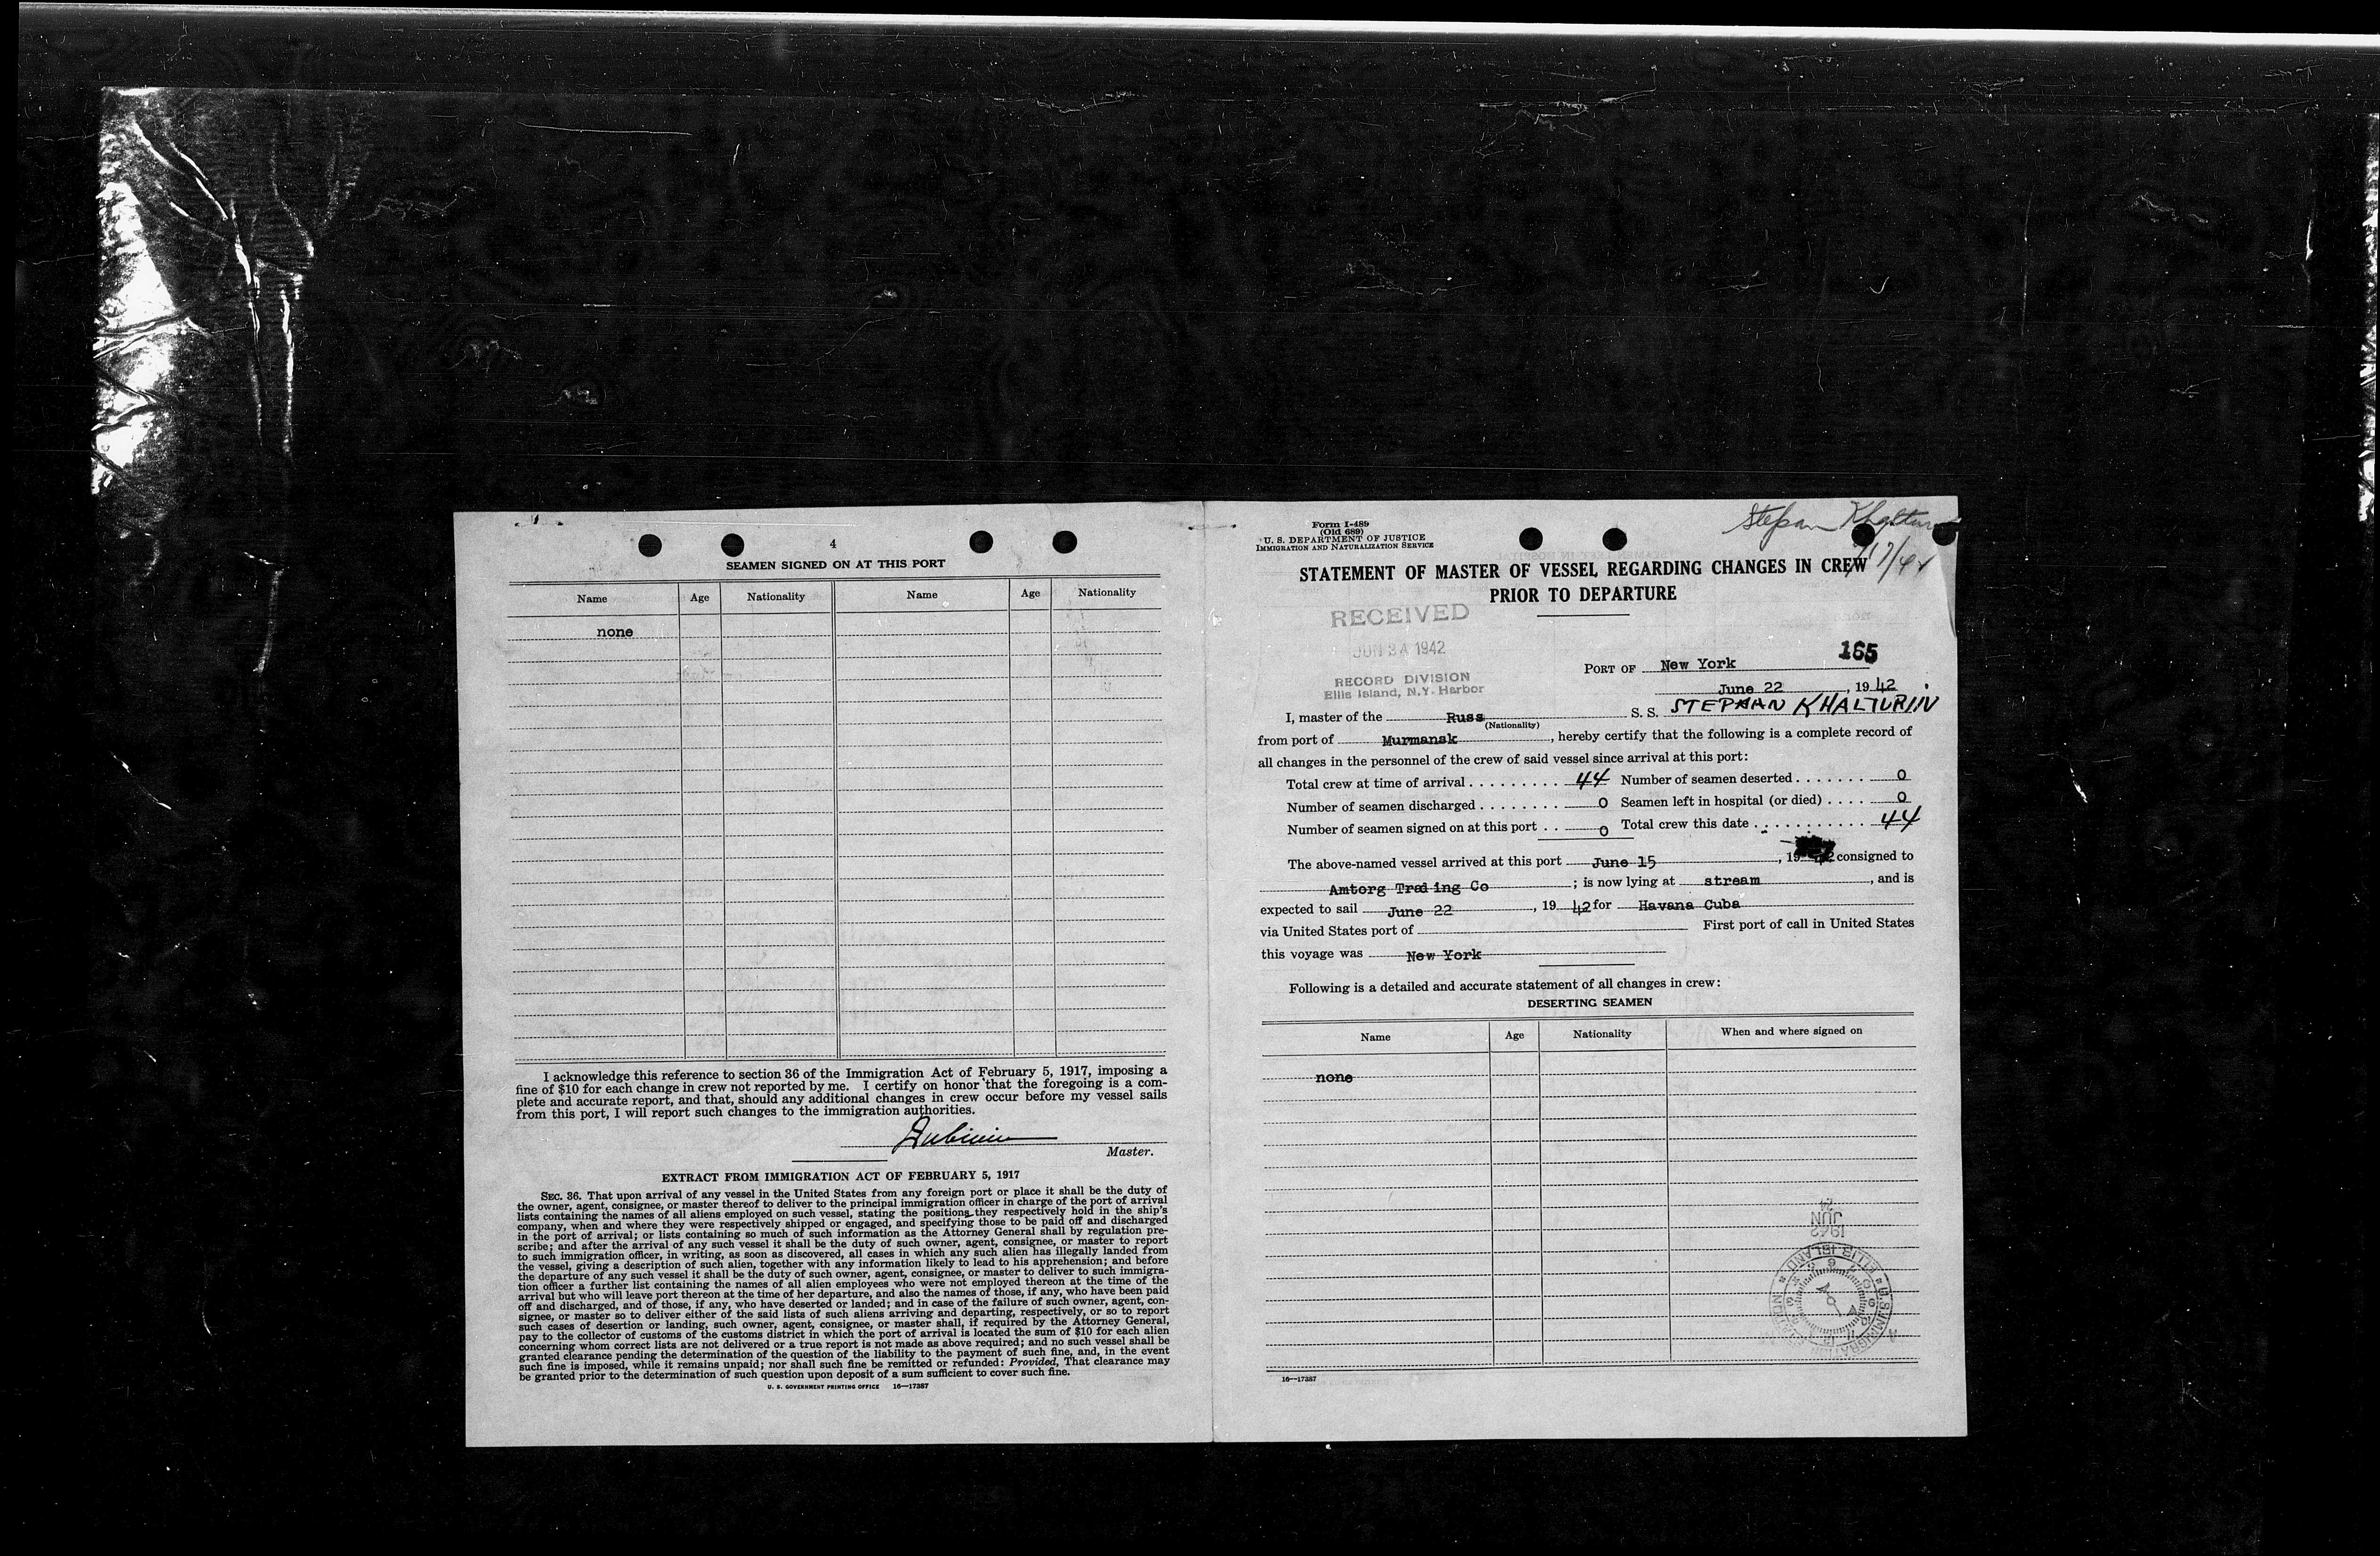 4
SEAMEN SIGNED ON AT THIS PORT
Name Age Nationality Name Age Nationality
none
I acknowledge this reference to section 36 of the Immigration Act of February 5, 1917, imposing a
fine of $10 for each change in crew not reported by me. I certify on honor that the foregoing is a com-
plete and accurate report, and that, should any additional changes in crew occur before my vessel sails
from this port, I will report such changes to the immigration authorities.
Master.
EXTRACT FROM IMMIGRATION ACT OF FEBRUARY 5, 1917
SEC. 36. That upon arrival of any vessel in the United States from any foreign port or place it shall be the duty of
the owner, agent, consignee, or master thereof to deliver to the principal immigration officer in charge of the port of arrival
lists containing the names of all aliens employed on such vessel, stating the positions they respectively hold in the ship's
company, when and where they were respectively shipped or engaged, and specifying those to be paid off and discharged
in the port of arrival; or lists containing so much of such information as the Attorney General shall by regulation pre-
scribe; and after the arrival of any such vessel it shall be the duty of such owner, agent, consignee, or master to report
to such immigration officer, in writing, as soon as discovered, all cases in which any such alien has illegally landed from
the vessel, giving a description of such alien, together with any information likely to lead to his apprehension; and before
the departure of any such vessel it shall be the duty of such owner, agent, consignee, or master to deliver to such immigra-
tion officer a further list containing the names of all alien employees who were not employed thereon at the time of the
arrival but who will leave port thereon at the time of her departure, and also the names of those, if any, who have been paid
off and discharged, and of those, if any, who have deserted or landed; and in case of the failure of such owner, agent, con-
signee, or master so to deliver either of the said lists of such aliens arriving and departing, respectively, or so to report
such cases of desertion or landing, such owner, agent, consignee, or master shall, if required by the Attorney General,
pay to the collector of customs of the customs district in which the port of arrival is located the sum of $10 for each alien
concerning whom correct lists are not delivered or a true report is not made as above required; and no such vessel shall be
granted clearance pending the determination of the question of the liability to the payment of such fine, and, in the event
such fine is imposed, while it remains unpaid; nor shall such fine be remitted or refunded: Provided, That clearance may
be granted prior to the determination of such question upon deposit of a sum sufficient to cover such fine.
U. S. GOVERNMENT PRINTING OFFICE 16—17387
Form I-489
(Old 689)
U. S. DEPARTMENT OF JUSTICE
IMMIGRATION AND NATURALIZATION SERVICE
Stepan
STATEMENT OF MASTER OF VESSEL REGARDING CHANGES IN CREW
PRIOR TO DEPARTURE
RECEIVED
JUN 24 1942
RECORD DIVISION
Ellis Island, N.Y. Harbor
165
PORT OF New York
June 22, 1942
I, master of the Russ S. S. STEPAN KHALTURIN
(Nationality)
from port of Murmansk, hereby certify that the following is a complete record of
all changes in the personnel of the crew of said vessel since arrival at this port:
Total crew at time of arrival . . . . . . . . . 44 Number of seamen deserted . . . . . . . 0
Number of seamen discharged . . . . . . . . 0 Seamen left in hospital (or died) . . . . 0
Number of seamen signed on at this port . . 0 Total crew this date . . . . . . . . . . . 44
The above-named vessel arrived at this port June 15, 1942 consigned to
Amtorg Trading Co; is now lying at stream, and is
expected to sail June 22, 1942 for Havana Cuba
via United States port of First port of call in United States
this voyage was New York
Following is a detailed and accurate statement of all changes in crew:
DESERTING SEAMEN
Name Age Nationality When and where signed on
none
24
JUN
1942
ELLIS ISLAND
U.S. IMMIGRATION
16—17387